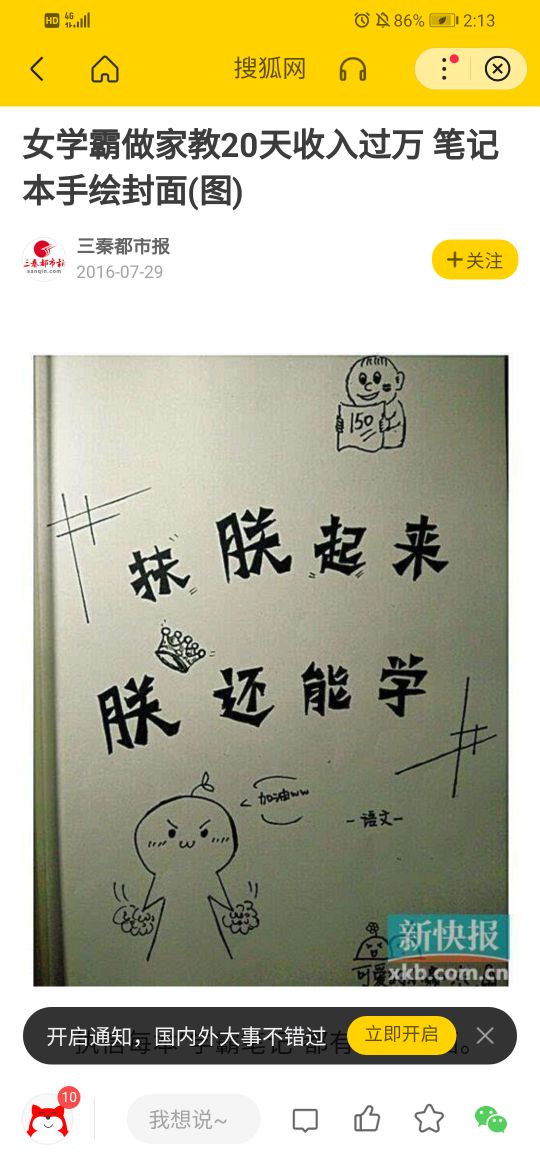 HD 4G 86% 2:13
搜狐网
女学霸做家教20天收入过万 笔记
本手绘封面(图)
三秦都市报
三秦都市报
sanqin.com
2016-07-29
+关注
150
扶朕起来
朕还能学
加油ww
-语文-
新快报
xkb.com.cn
可爱
开启通知，国内外大事不错过 立即开启
10
我想说~